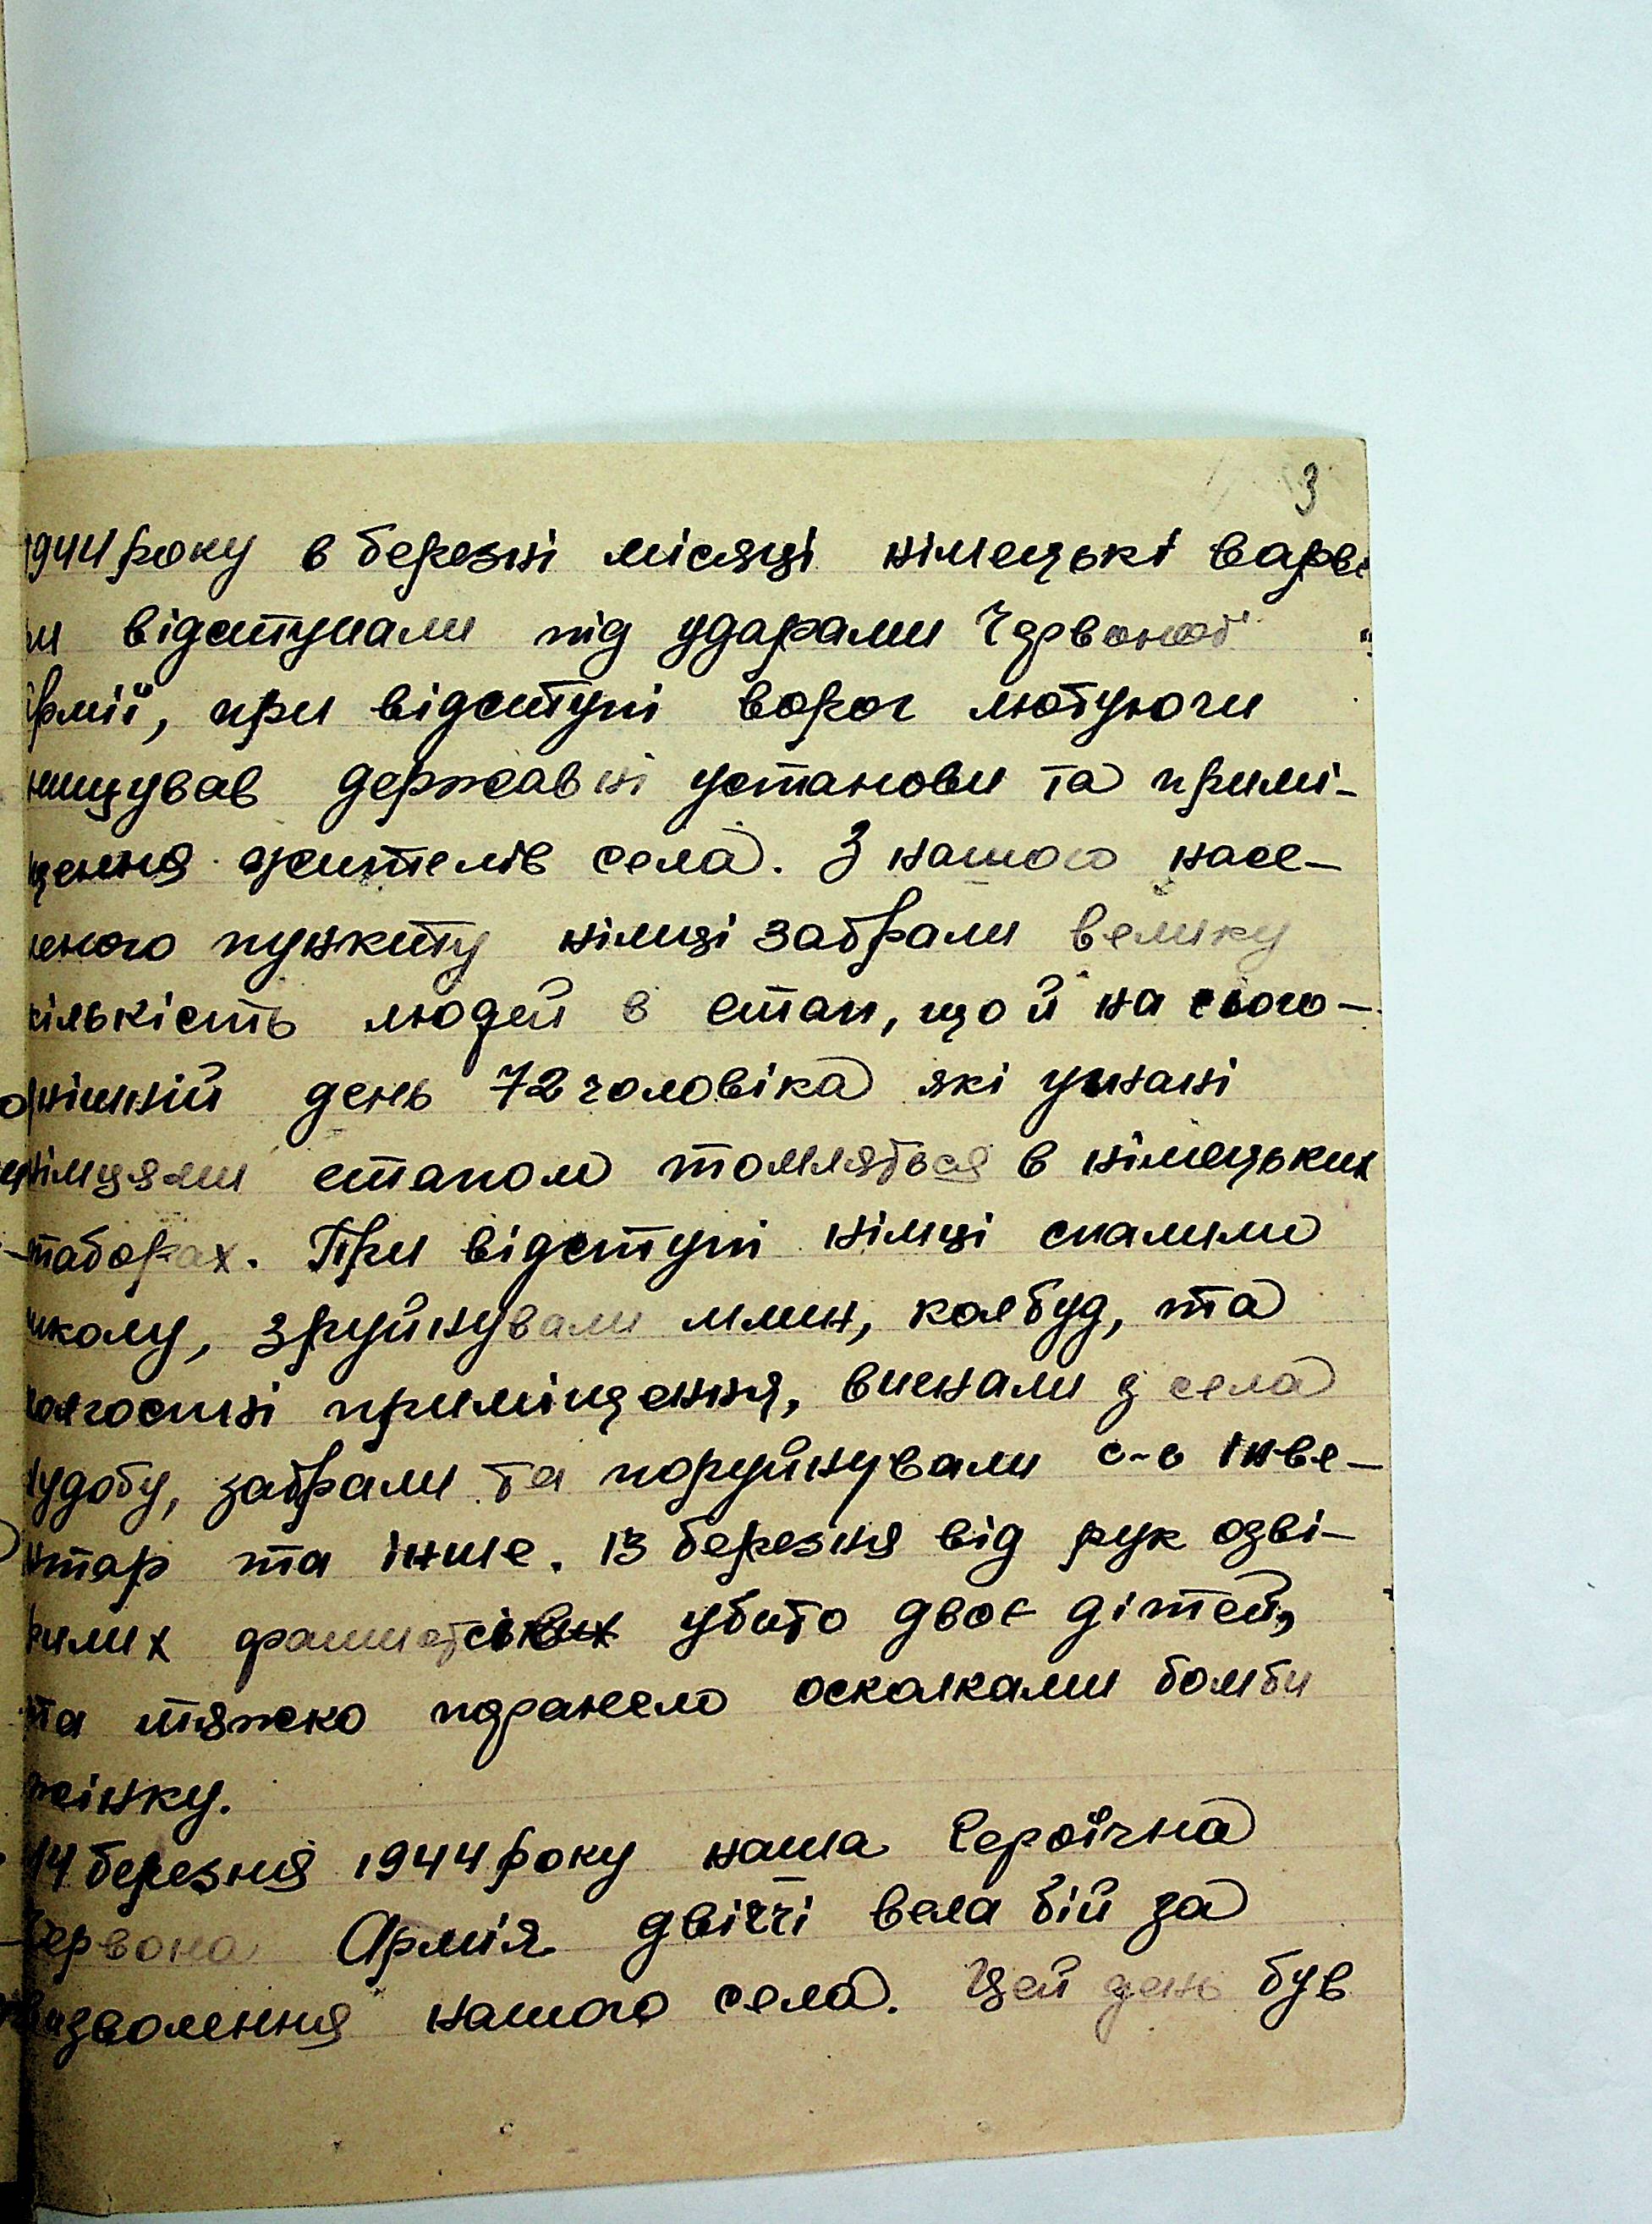 3
1944 року в березні місяці німецькі варва
ри відступали під ударами Червоної
Армії, при відступі ворог лютуючи
нищував державні установи та примі-
щення жителів села. З нашого насе-
леного пункту німці забрали велику
кількість людей в етап, що й на сього-
днішній день 72 чоловіка які угнані
німцями етапом томляться в німецьких
таборах. При відступі німці спалили
школу, зруйнували млин, колбуд, та
колгоспні приміщення, вигнали з села
худобу, забрали та поруйнували с-г інве-
нтар та інше. 13 березня від рук озві-
рилих фашистськ убито двоє дітей,
та тяжко поранело осколками бомби
жінку.
14 березня 1944 року наша Героїчна
Червона Армія двіччі вела бій за
визволення нашого села. Цей день був